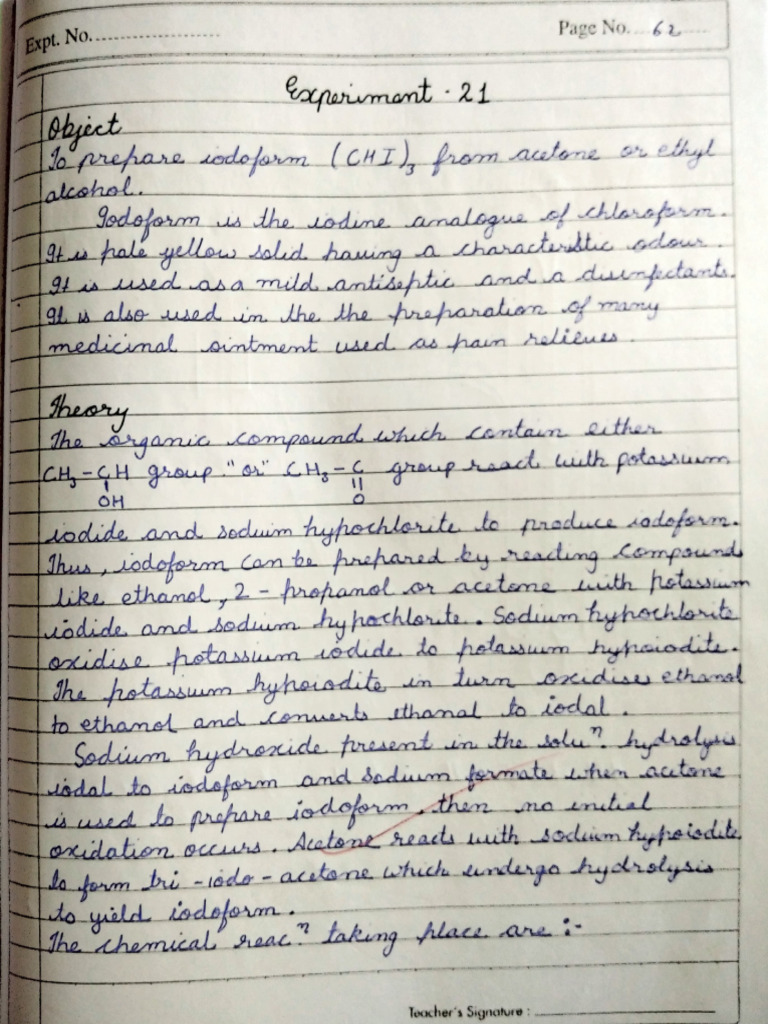 Expt. No.
Page No. 62
Experiment · 21
Object
To prepare iodoform (CHI)₃ from acetone or ethyl
alcohol.
Iodoform is the iodine analogue of chloroform.
It is pale yellow solid having a characteristic odour.
It is used as a mild antiseptic and a disinfectants.
It is also used in the the preparation of many
medicinal ointment used as pain relieves.
Theory
The organic compound which contain either
CH₃-CH group "or" CH₃-C group react with potassium
OH O
iodide and sodium hypochlorite to produce iodoform.
Thus, iodoform can be prepared by reacting compounds
like ethanol, 2-propanol or acetone with potassium
iodide and sodium hypochlorite. Sodium hypochlorite
oxidise potassium iodide to potassium hypoiodite.
The potassium hypoiodite in turn oxidises ethanol
to ethanol and converts ethanal to iodal.
Sodium hydroxide present in the soluⁿ. hydrolysis
iodal to iodoform and sodium formate when acetone
is used to prepare iodoform, then no initial
oxidation occurs. Acetone reacts with sodium hypoiodite
to form tri-iodo-acetone which undergo hydrolysis
to yield iodoform.
The chemical reacⁿ. taking place are :-
Teacher's Signature :